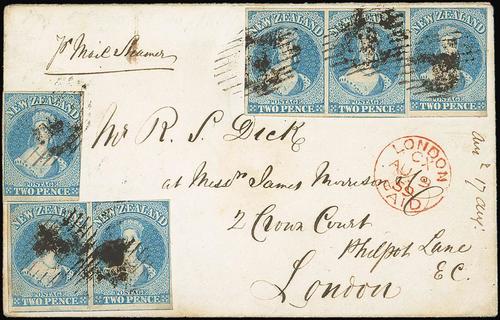 NEW ZEALAND
POSTAGE
TWO PENCE
NEW ZEALAND
POSTAGE
TWO PENCE
NEW ZEALAND
POSTAGE
TWO PENCE
pr Mail Steamer
NEW ZEALAND
POSTAGE
TWO PENCE
Mr R. S. Dick
at Messrs James Morrison & Co
2 Crown Court
Philpot Lane
London
E C.
LONDON
CX
AU 17
59
PAID
17 aug.
NEW ZEALAND
POSTAGE
TWO PENCE
NEW ZEALAND
POSTAGE
TWO PENCE